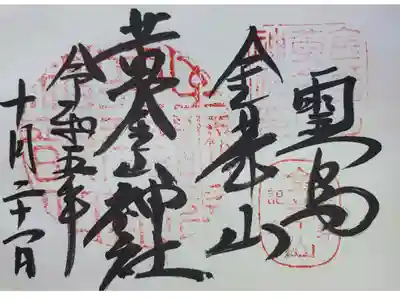 霊島
金華山
黄金山神社
令和五年
十月二十一日